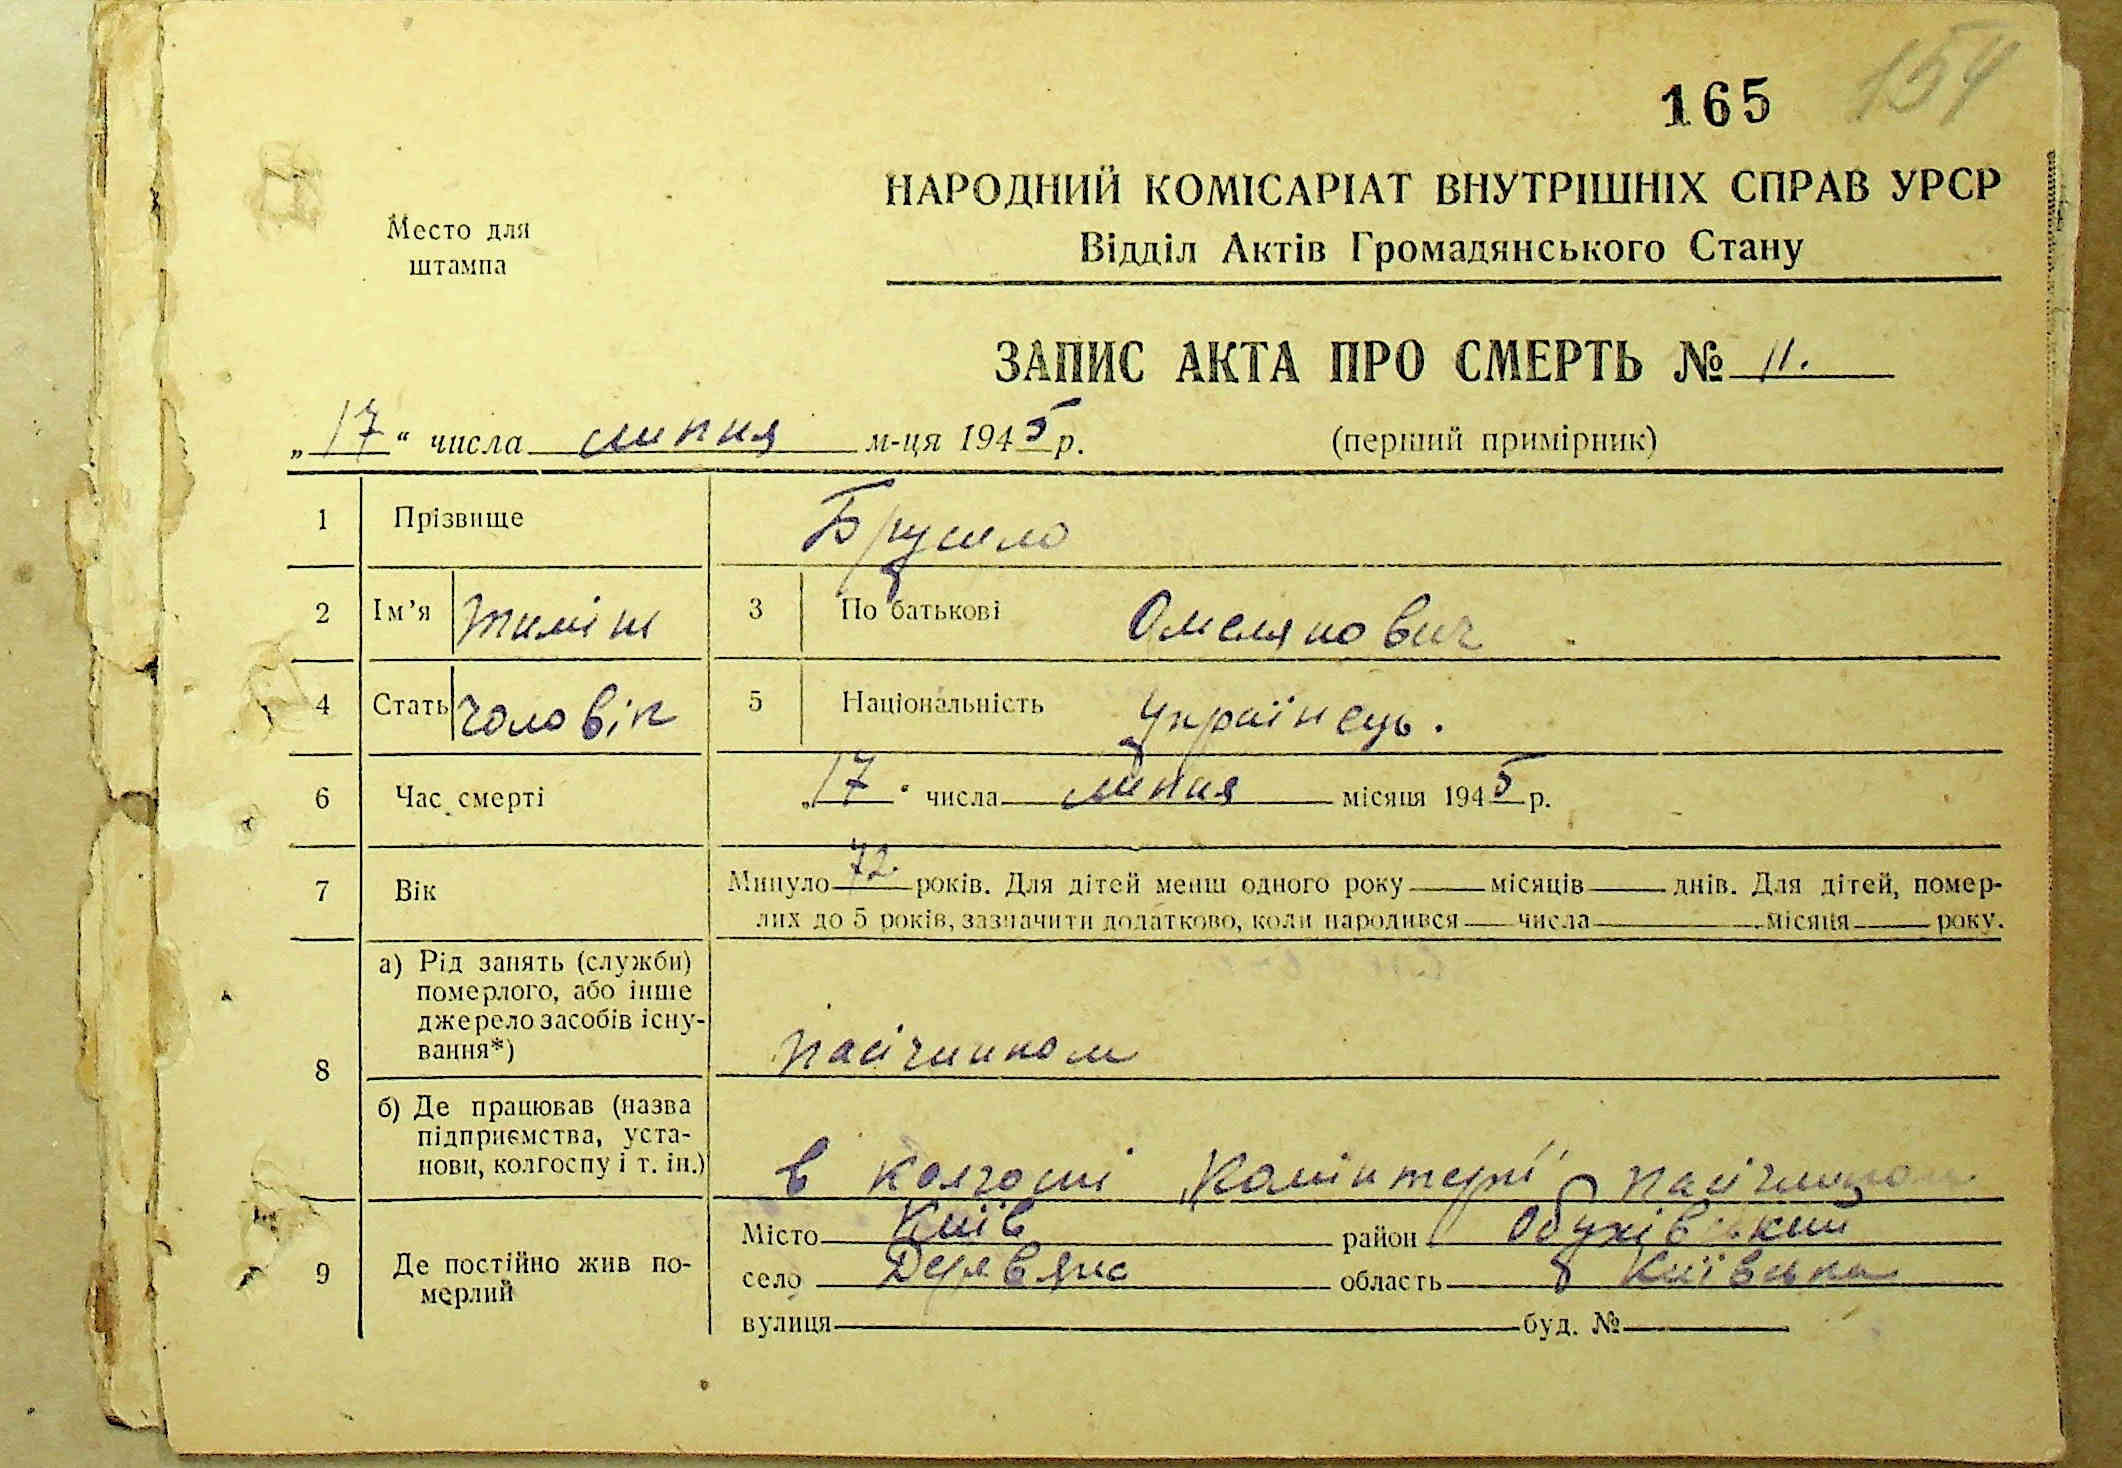 165 154
НАРОДНИЙ КОМІСАРІАТ ВНУТРІШНІХ СПРАВ УРСР
Место для штампа
Відділ Актів Громадянського Стану
ЗАПИС АКТА ПРО СМЕРТЬ № 11.
„17“ числа липня м-ця 1945 р.
(перший примірник)
1 Прізвище Брусило
2 Ім’я Тиміш 3 По батькові Омелянович
4 Стать чоловік 5 Національність Українець.
6 Час смерті „17“ числа липня місяця 1945 р.
7 Вік Минуло 72 років. Для дітей менш одного року місяців днів. Для дітей, помер-
лих до 5 років, зазначити додатково, коли народився числа місяця року.
8 а) Рід занять (служби)
померлого, або інше
джерело засобів існу-
вання*) пасічником
б) Де працював (назва
підприємства, уста-
нови, колгоспу і т. ін.) в колгоспі Комінтерн пасічником
9 Де постійно жив по-
мерлий
Місто Київ район Обухівський
село Деревяна область Київська
вулиця буд. №